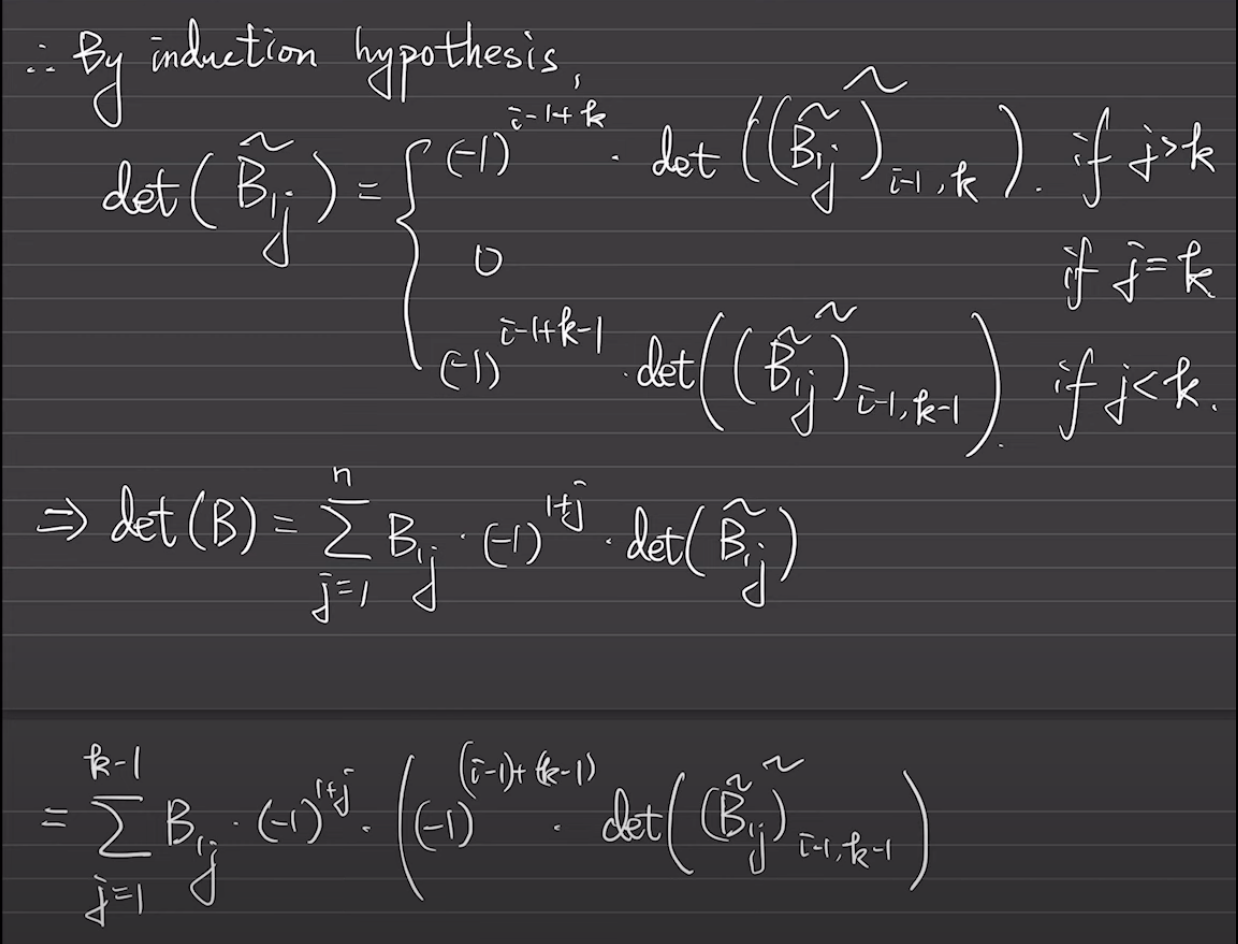 ∴ By induction hypothesis,
det( B̃₁ⱼ ) = { (-1)^{i-1+k} · det ( (B̃₁ⱼ)~_{i-1,k} ). if j>k
0 if j=k
(-1)^{i-1+k-1} · det( (B̃₁ⱼ)~_{i-1,k-1} ). if j<k.
⇒ det(B) = ∑_{j=1}^{n} B₁ⱼ · (-1)^{1+j} · det( B̃₁ⱼ )
= ∑_{j=1}^{k-1} B₁ⱼ · (-1)^{1+j} · ( (-1)^{(i-1)+(k-1)} · det( (B̃₁ⱼ)~_{i-1,k-1} )